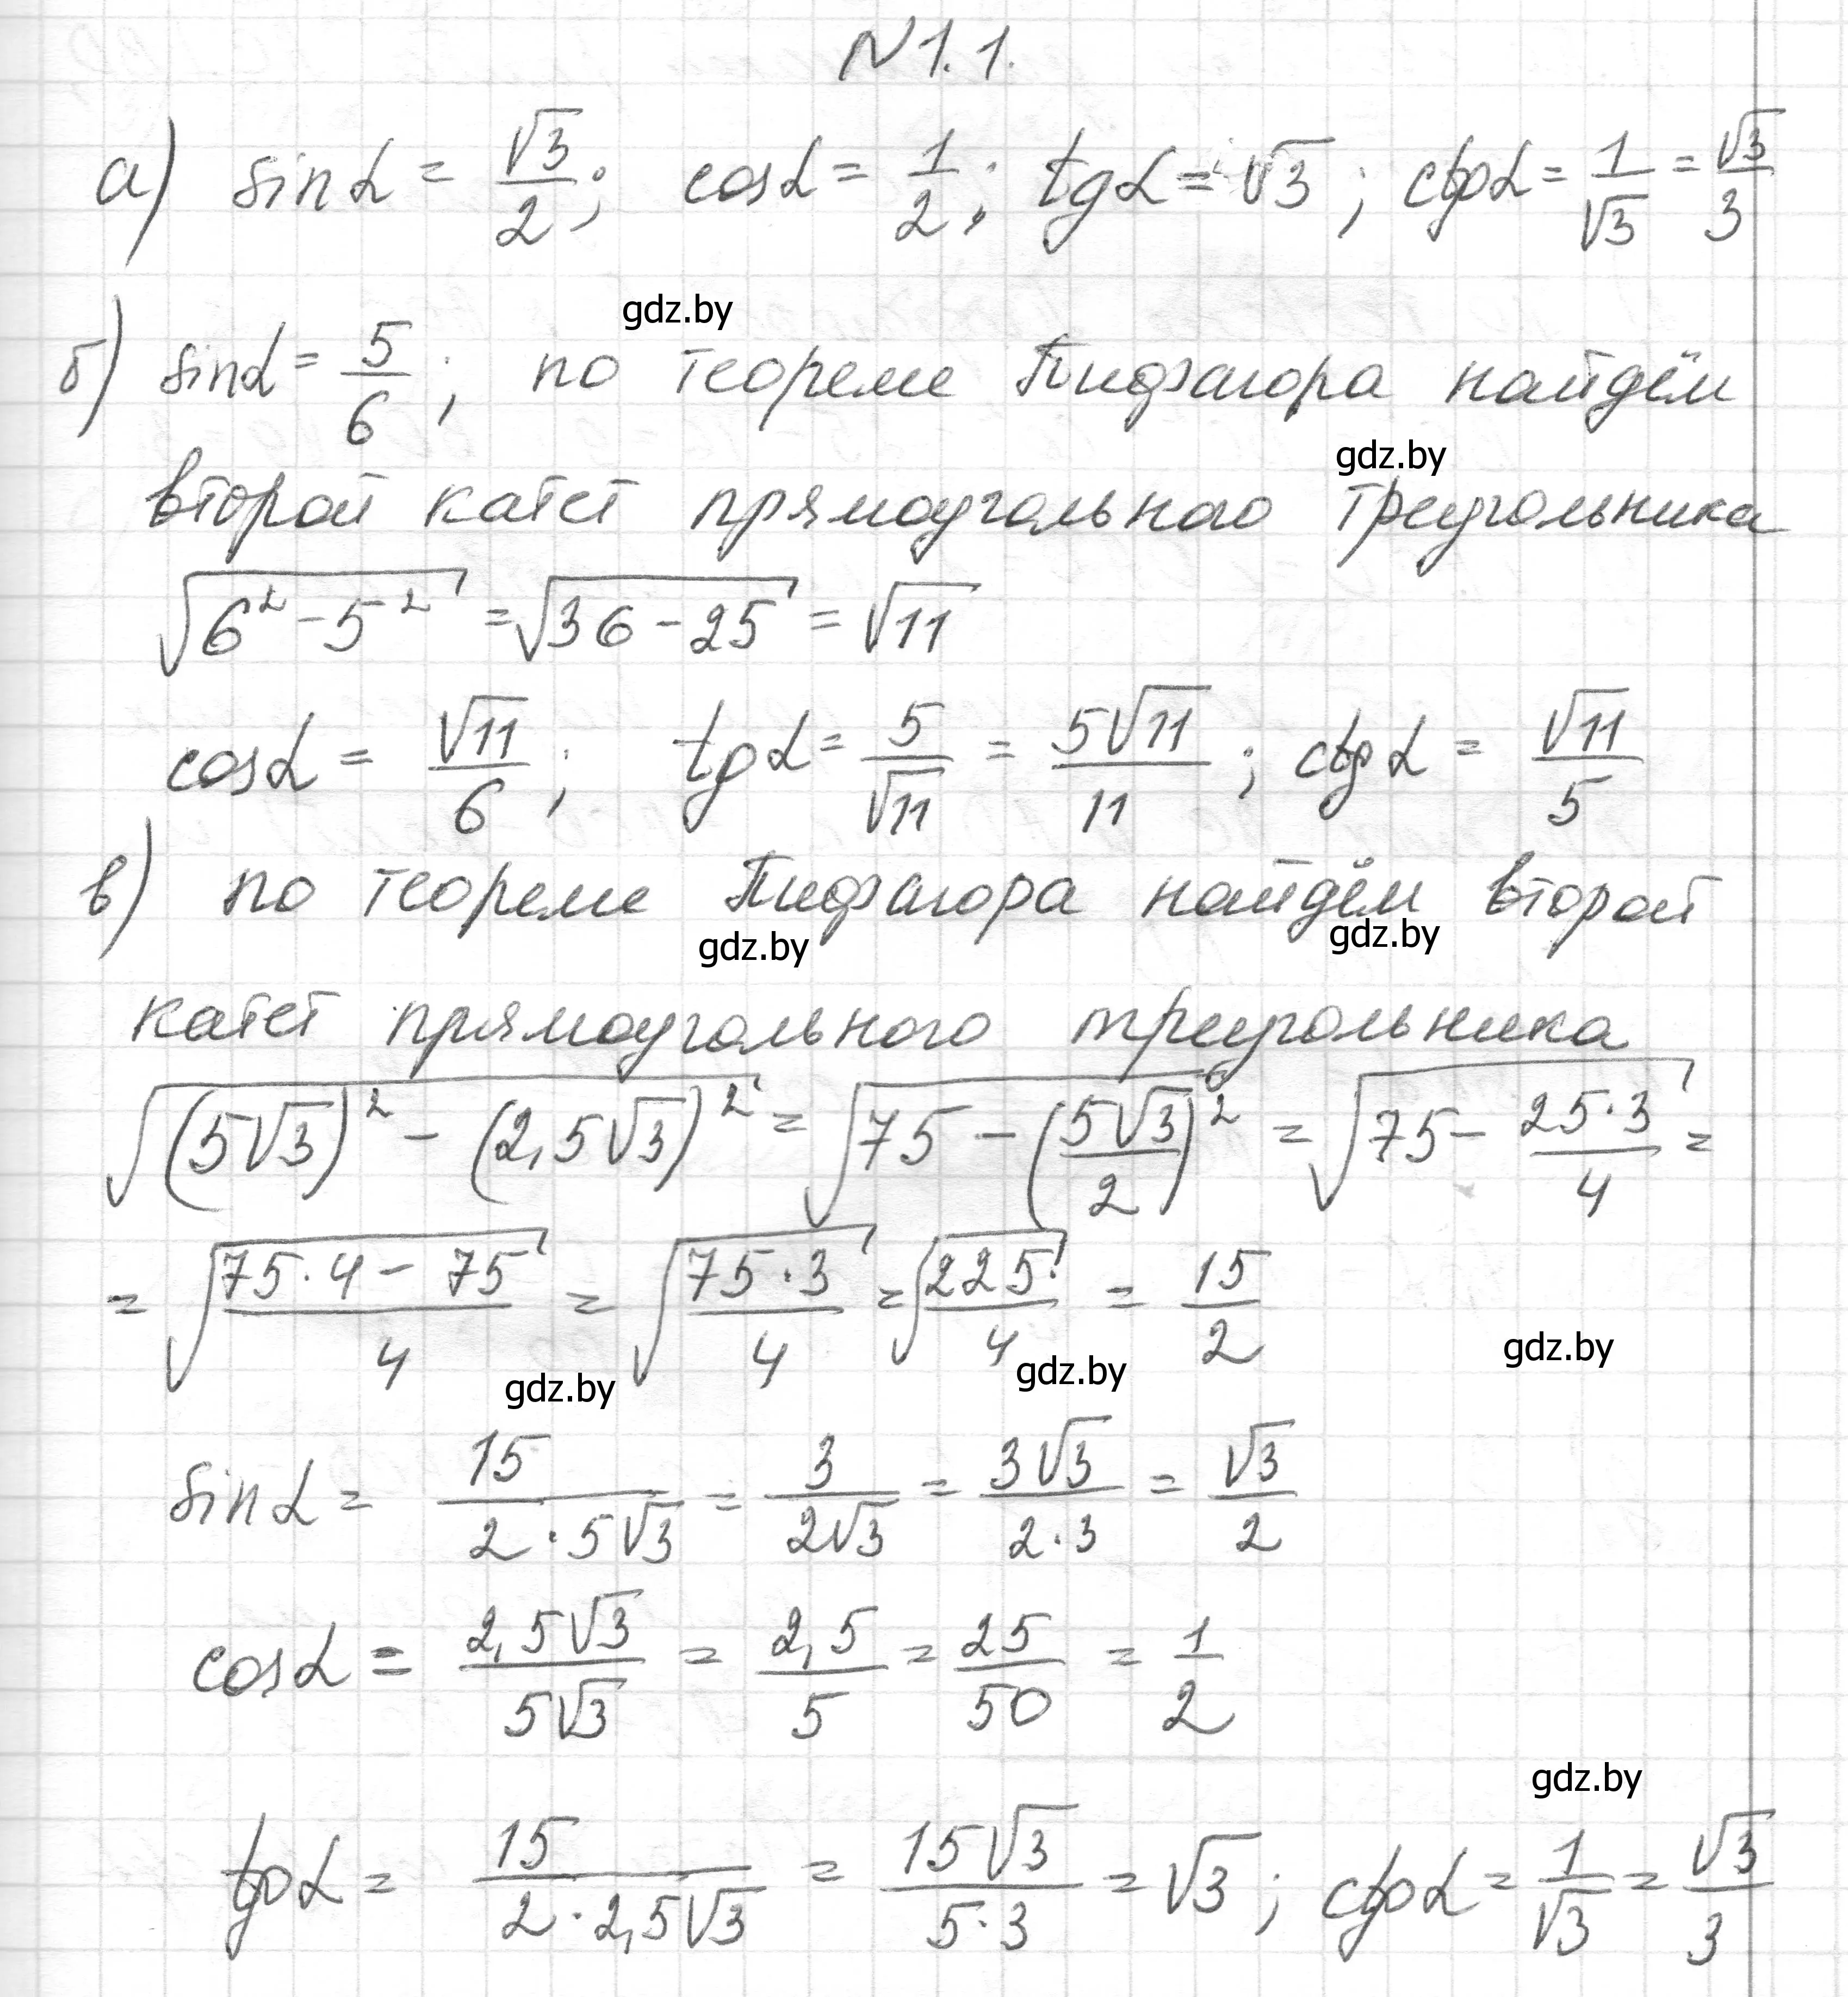 N 1.1.
а) sin α = √3/2; cos α = 1/2; tg α = √3; ctg α = 1/√3 = √3/3
gdz.by
б) sin α = 5/6; по теореме Пифагора найдём
gdz.by
второй катет прямоугольного треугольника
√(6² - 5²) = √(36 - 25) = √11
cos α = √11/6; tg α = 5/√11 = 5√11/11; ctg α = √11/5
в) по теореме Пифагора найдём второй
gdz.by gdz.by
катет прямоугольного треугольника
√((5√3)² - (2,5√3)²) = √(75 - (5√3/2)²) = √(75 - 25·3/4) =
= √((75·4 - 75)/4) = √(75·3/4) = √(225/4) = 15/2
gdz.by gdz.by gdz.by
sin α = 15/(2·5√3) = 3/(2√3) = 3√3/(2·3) = √3/2
cos α = 2,5√3/(5√3) = 2,5/5 = 25/50 = 1/2
gdz.by
tg α = 15/(2·2,5√3) = 15√3/(5·3) = √3; ctg α = 1/√3 = √3/3